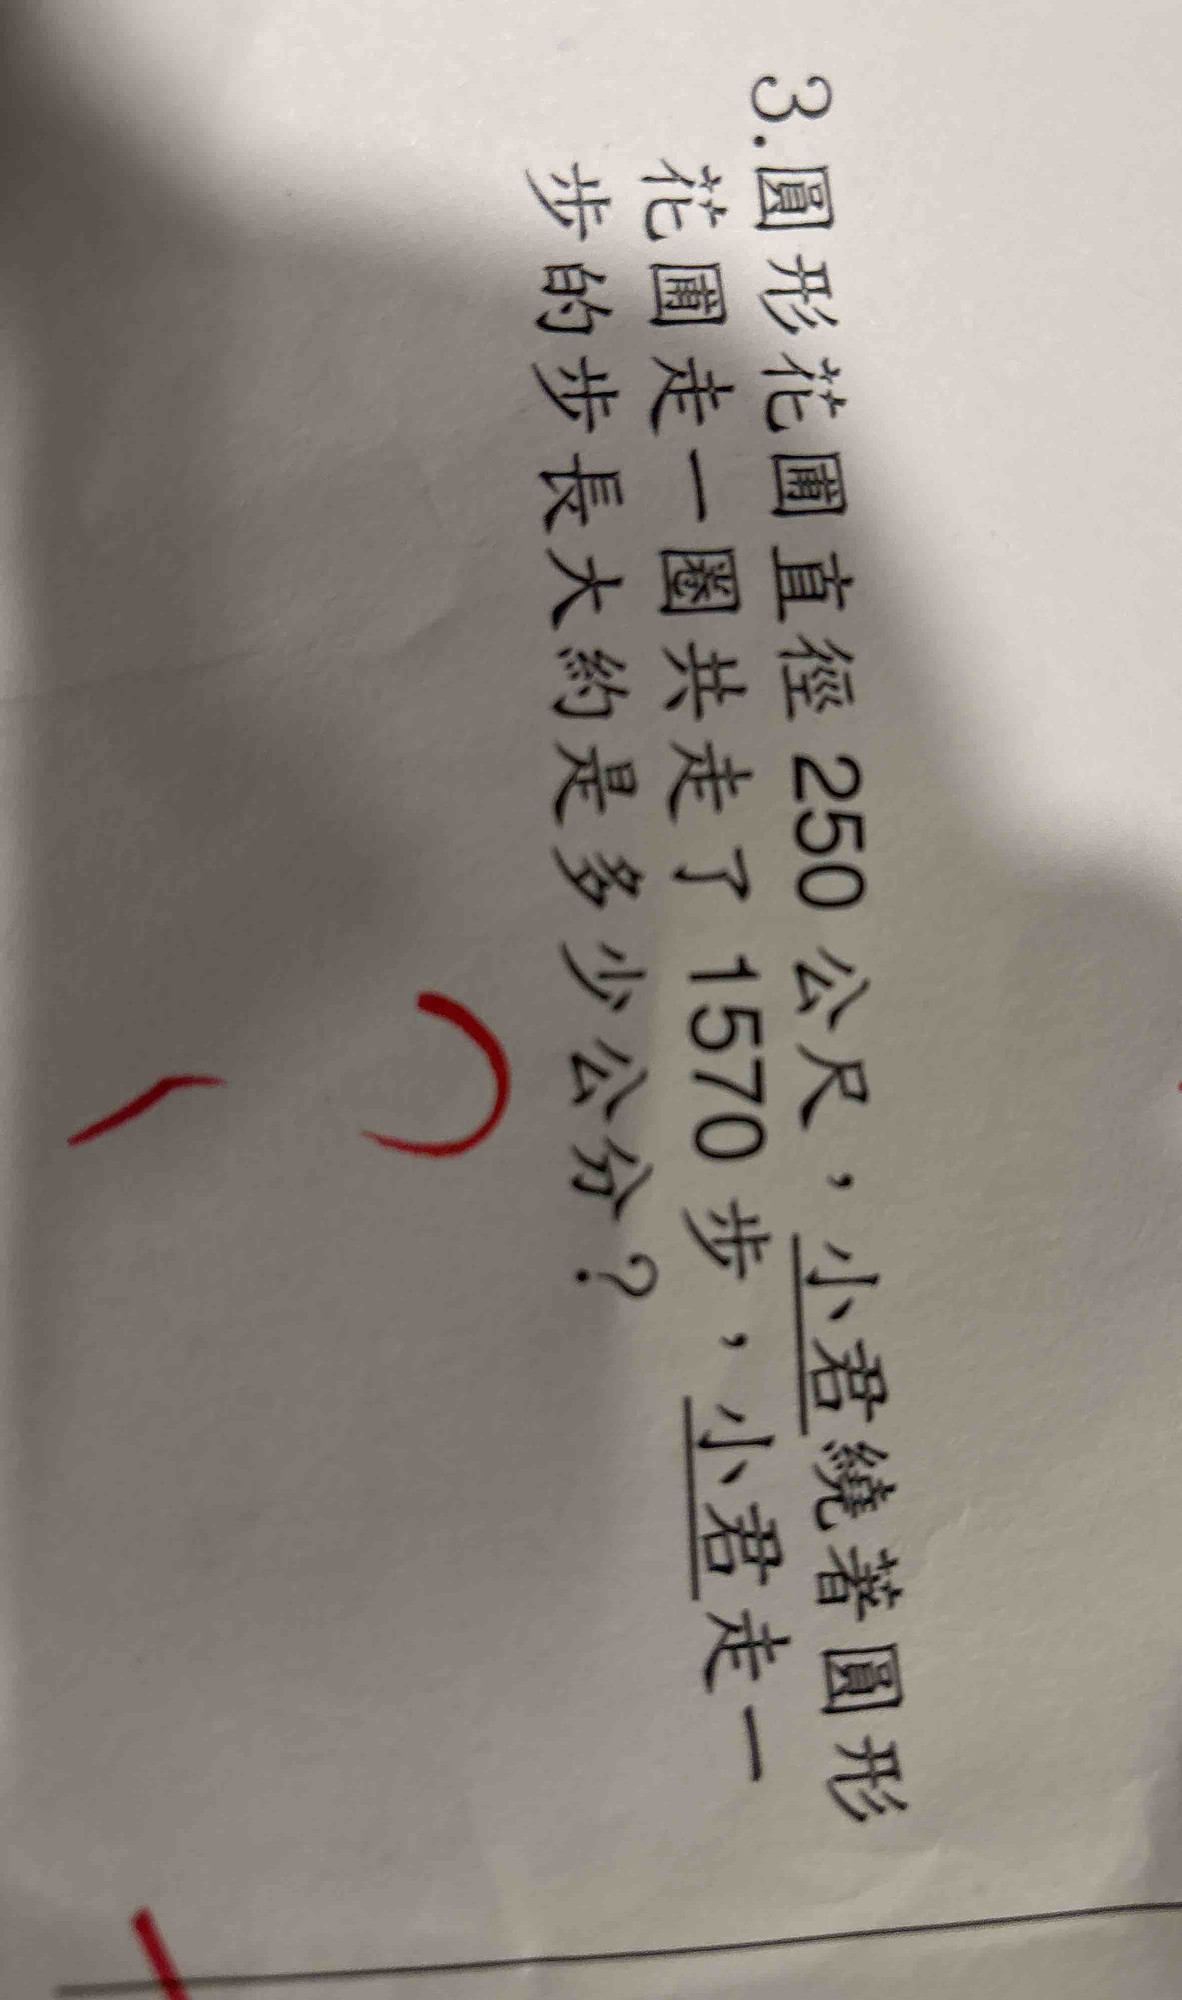 3.圓形花圃直徑 250 公尺，小君繞著圓形
花圃走一圈共走了 1570 步，小君走一
步的步長大約是多少公分？